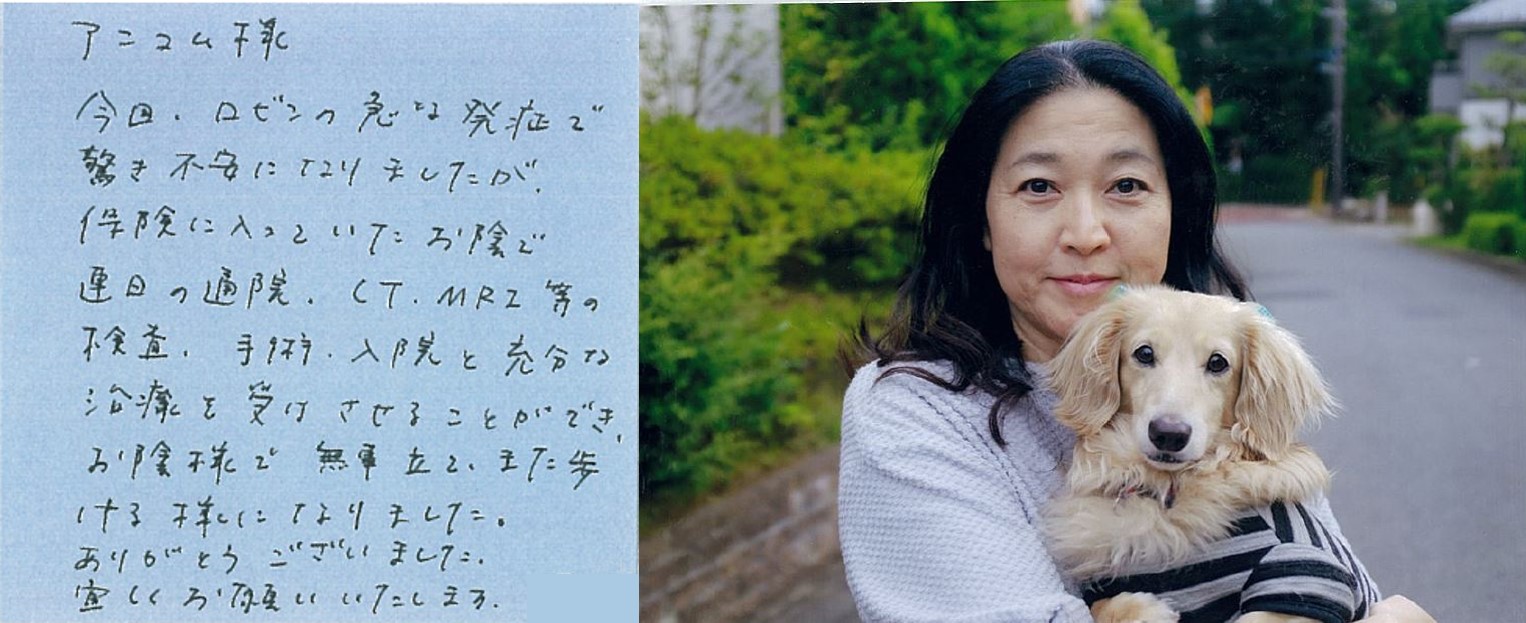 アニコム様
今回、ロビンの急な発症で
驚き不安になりましたが、
保険に入っていたお陰で
連日の通院、CT、MRI等の
検査、手術、入院と充分な
治療を受けさせることができ、
お陰様で無事立て、また歩
ける様にになりました。
ありがとうございました。
宜しくお願いいたします。